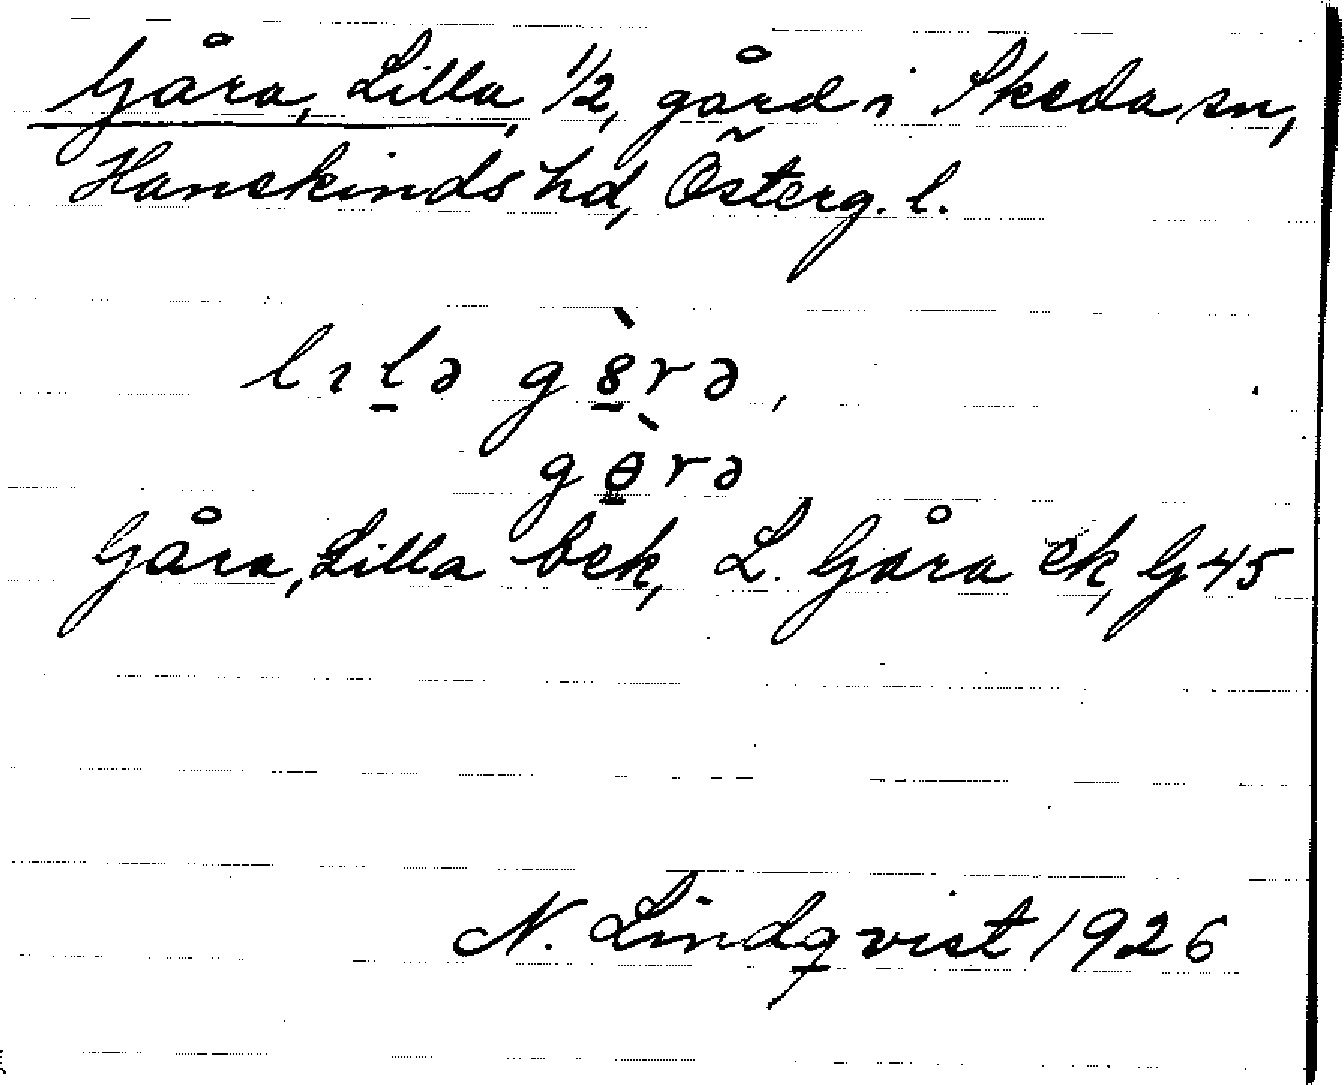 Gåra, Lilla, 1/2, gård i Skeda sn,
Hanekinds hd, Österg. l.
lɩlə g8̀rə,
gɵ̀rə
Gåra, Lilla bek, L. Gåra ek, G45
N. Lindqvist 1926